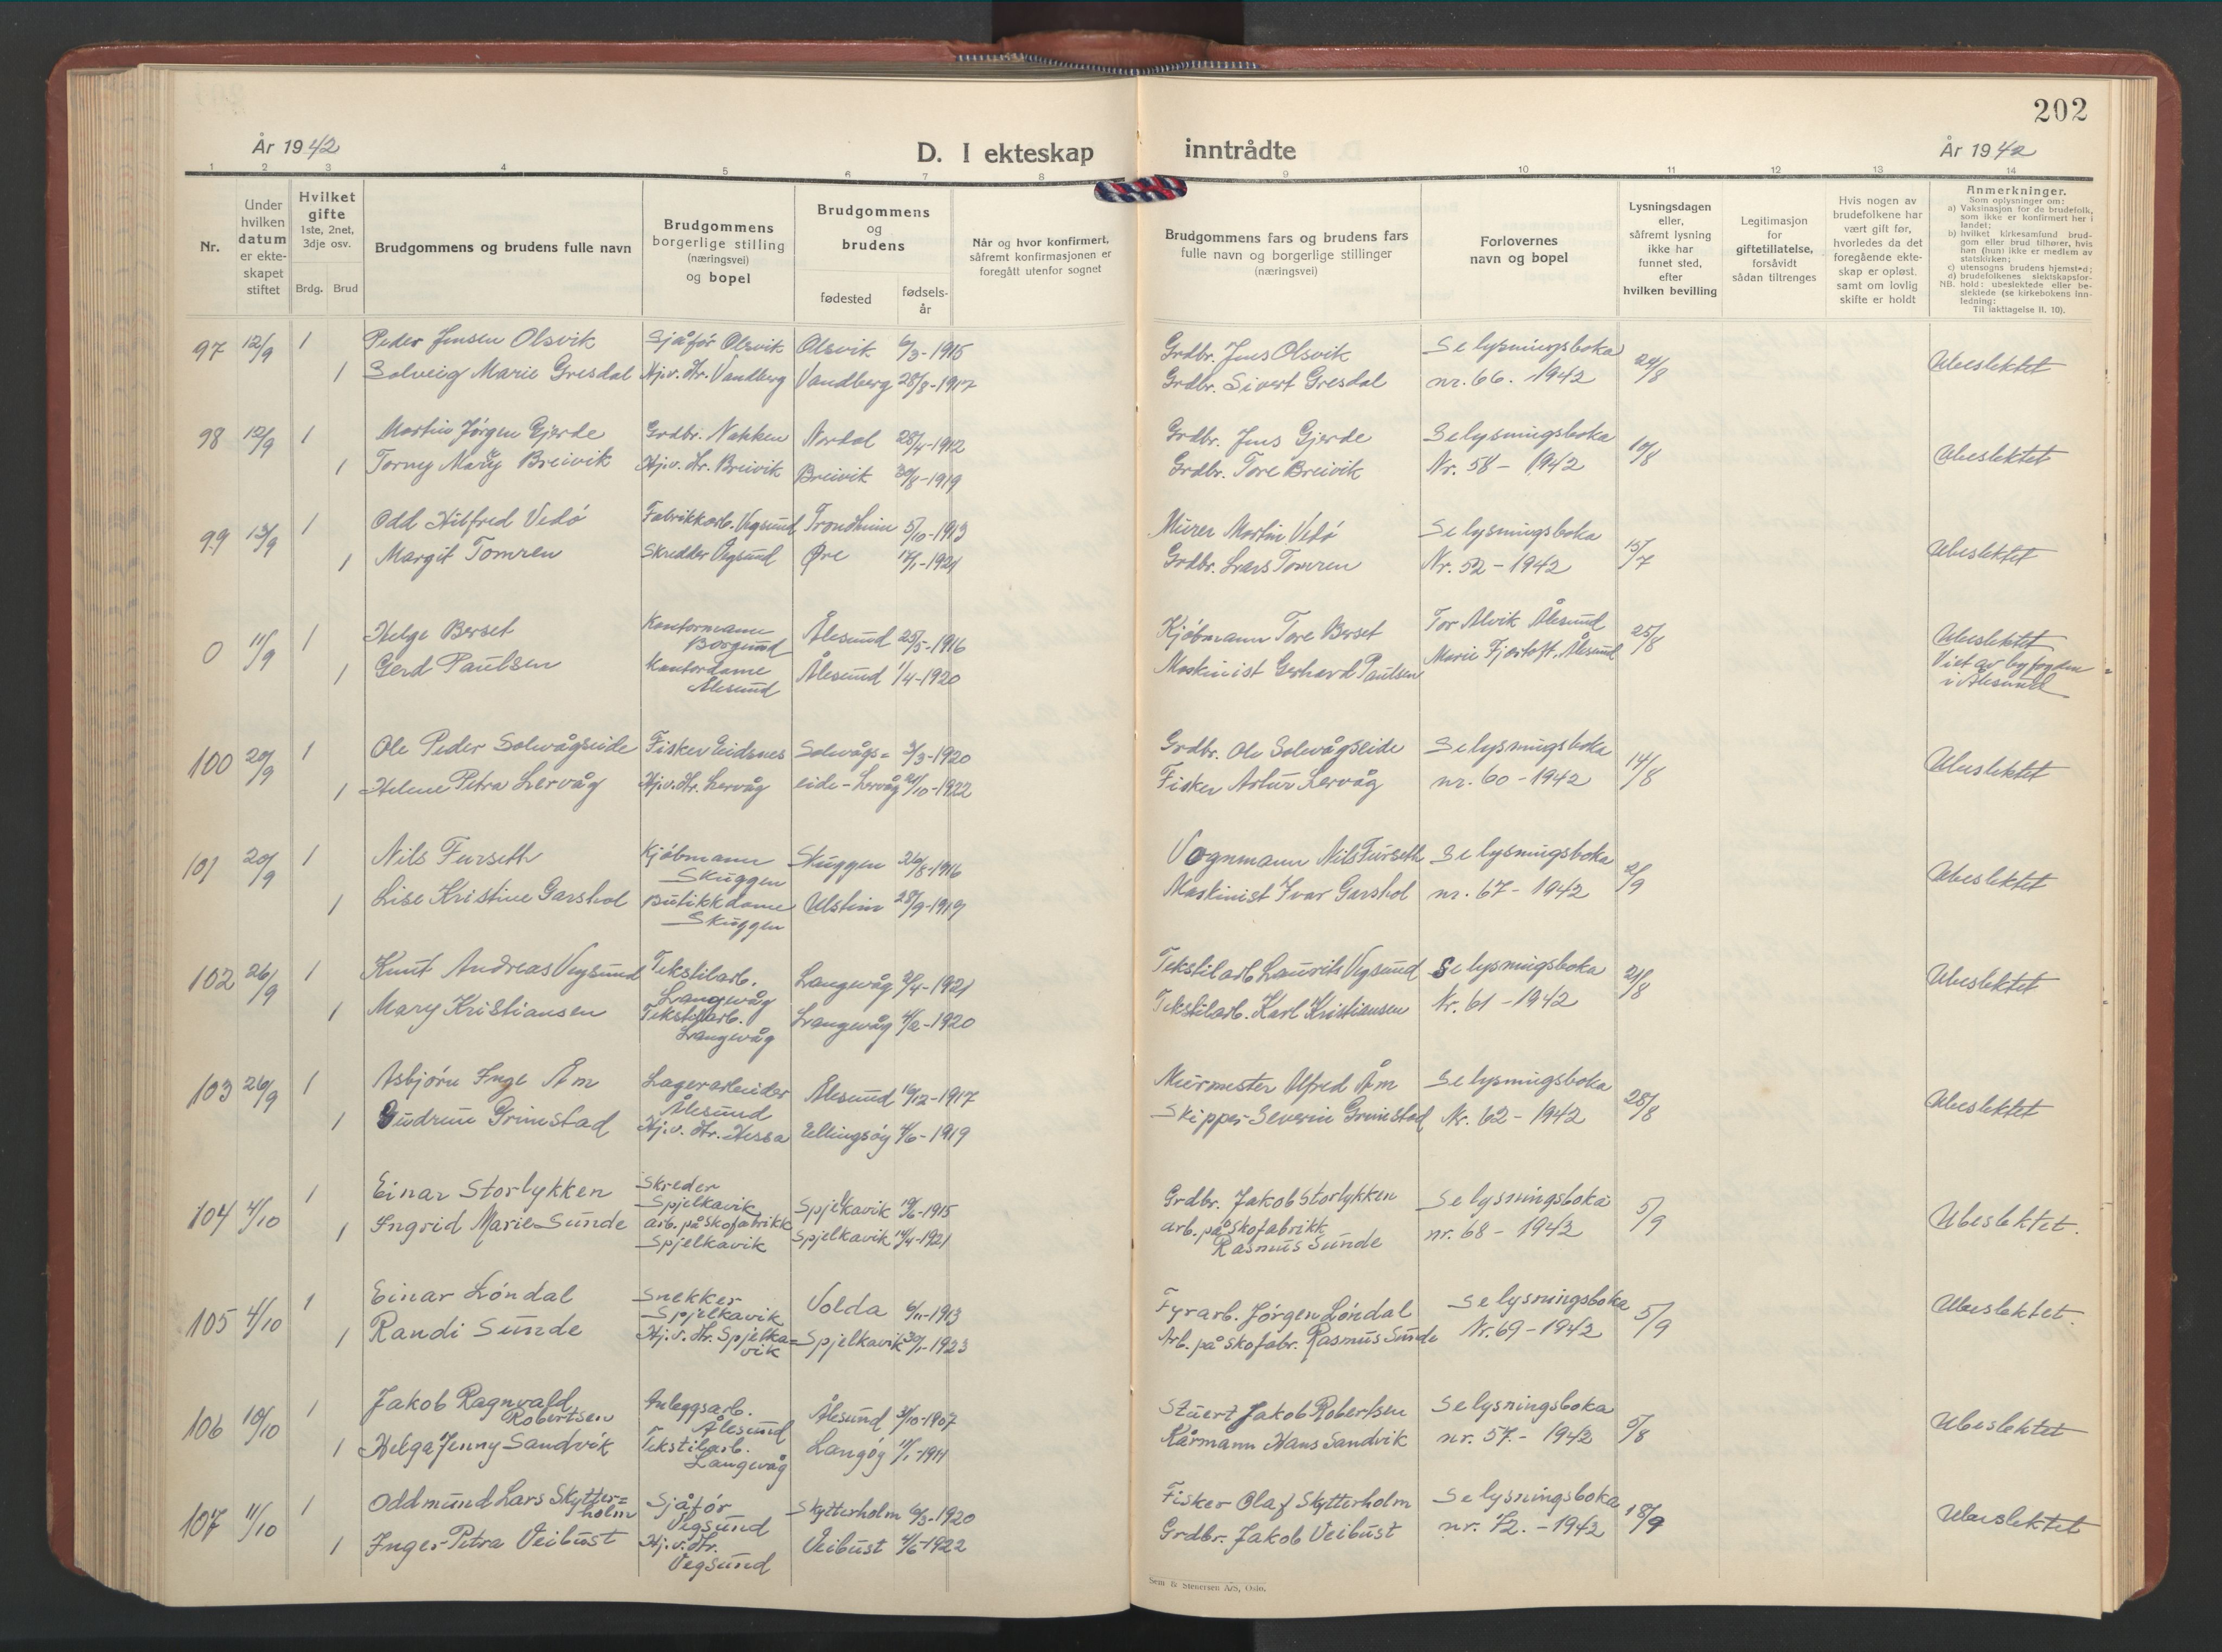 202
År 1942
D. I ekteskap inntrådte
År 1942
1 2 3 4 5 6 7 8 9 10 11 12 13 14
Nr.
Under hvilken datum er ekte- skapet stiftet
Hvilket gifte 1ste, 2net, 3dje osv.
Brdg. Brud
Brudgommens og brudens fulle navn
Brudgommens borgerlige stilling (næringsvei) og bopel
Brudgommens og brudens
fødested
fødsels- år
Når og hvor konfirmert, såfremt konfirmasjonen er foregått utenfor sognet
Brudgommens fars og brudens fars fulle navn og borgerlige stillinger (næringsvei)
Forlovernes navn og bopel
Lysningsdagen eller, såfremt lysning ikke har funnet sted, efter hvilken bevilling
Legitimasjon for giftetillatelse, forsåvidt sådan tiltrenges
Hvis nogen av brudefolkene har vært gift før, hvorledes da det foregående ekte- skap er opløst samt om lovlig skifte er holdt
Anmerkninger.
Som oplysninger om:
a) Vaksinasjon for de brudefolk, som ikke er konfirmert her i landet;
b) hvilket kirkesamfund brud- gom eller brud tilhører, hvis han (hun) ikke er medlem av statskirken;
c) utensogns brudens hjemsted;
d) brudefolkenes slektskapsfor- hold: ubeslektede eller be- slektede (se kirkebokens inn- ledning:
NB. Til iakttagelse II. 10).
97 12/9 1 Peder Jensen Olsvik Sjåfór Olsvik Olsvik 6/3-1915 Grdbr. Jens Olsvik Se lysningsboka 24/8 Ubeslektet
1 Solveig Marie Gresdal Hj.v. Hr. Vandberg Vandberg 28/8-1917 Grdbr. Sivert Gresdal nr. 66. 1942
98 12/9 1 Martin Jørgen Gjerde Grdbr. Nakken Nordal 28/4-1912 Grdbr. Jens Gjerde Se lysningsboka 10/8 Ubeslektet
1 Torney Mary Breivik Hj.v. Hr. Breivik Breivik 30/8-1919 Grdbr. Tore Breivik Nr. 58 - 1942
99 13/9 1 Odd Hilfred Vedó Fabrikkarb. Vegsund Trondheim 5/10-1913 Murer Martin Vedó Se lysningsboka 15/7 Ubeslektet
1 Margit Tomren Skredder Vegsund Øre 1921 Grdbr. Lars Tomren Nr. 52 - 1942
0 11/9 1 Helge Berset Kontormann Borgund Ålesund 25/5-1916 Kjóbmann Tore Berset Tor Alvik Ålesund 25/8 Ubeslektet
1 Gerd Paulsen Kontordame Ålesund Ålesund 1/4-1920 Maskinist Gerhard Paulsen Marie Fjørtoft, Ålesund Viet av byfogden
i Ålesund
100 20/9 1 Ole Peder Solevågseide Fisker Eidsnes Solevågs= 3/3-1920 Grdbr. Ole Solevågseide Se lysningsboka 14/8 Ubeslektet
1 Helene Petra Lervåg Hj.v. Hr. Lervåg eide - Lervåg 21/10-1922 Fisker Artur Lervåg nr. 60 - 1942
101 20/9 1 Nils Furseth Kjóbmann Skuggen Skuggen 26/8-1916 Vognmann Nils Furseth Se lysningsboka 2/9 Ubeslektet
1 Lise Kristine Garshol putikkdame Skuggen Ulstein 28/9-1919 Maskinist Ivar Garshol nr. 67 - 1942
102 26/9 1 Knut Andreas Vegsund Tekstilarb. Langevåg Langevåg 1921 Tekstilarb Laurits Vegsund Se lysningsboka 21/8 Ubeslektet
1 Mary Kristiansen Tekstilarb. Langevåg Langevåg 4/2-1920 Tekstilarb. Karl Kristiansen Nr. 61 - 1942
103 26/9 1 Asbjórn Inge Åm Lagerarbeider Ålesund Ålesund 16/12-1917 Murmester Alfred Åm Se lysningsboka 28/8 Ubeslektet
1 Gudrun Grimstad Hj.v. Hr. Hessa Ellingsóy 4/6-1919 Skipper Severin Grimstad Nr. 62 - 1942
104 4/10 1 Einar Storlykken Skreder Spjelkavik Spjelkavik 19/6-1915 Grdbr. Jakob Storlykken Se lysningsboka 5/9 Ubeslektet.
1 Ingrid Marie Sunde arb. på skofabrikk Spjelkavik Spjelkavik 14/4-1921 arb. på skofabrikk Rasmus Sunde nr. 68 - 1942
105 4/10 1 Einar Lóndal Snekker Spjelkavik Volda 6/11-1913 Fyrarb. Jórgen Lóndal Se lysningsboka 5/9 Ubeslektet.
1 Randi Sunde Hj.v. Hr. Spjelka= vik Spjelkavik 1923 Arb. på skofabr. Rasmus Sunde Nr. 69 - 1942
106 10/10 1 Jakob Ragnvald Robertsen Anleggsarb. Ålesund Ålesund 31/10-1907 Stuert Jakob Robertsen Se lysningsboka 5/8 Ubeslektet
1 Helga Jenny Sandvik Tekstilarb. Langevåg Langóy 1911 Kårmann Hans Sandvik nr. 57. - 1942
107 11/10 1 Oddmund Lars Skytter= holm Sjåfór Vegsund Skytterholm 1920 Fisker Olaf Skytterholm Se lysningsboka 18/9 Ubeslektet
1 Inger-Petra Veibust Hj.v. Hr. Vegsund Veibust 4/6-1922 Grdbr. Jakob Veibust nr. 72. - 1942
Sem & Stenersen A/S, Oslo.